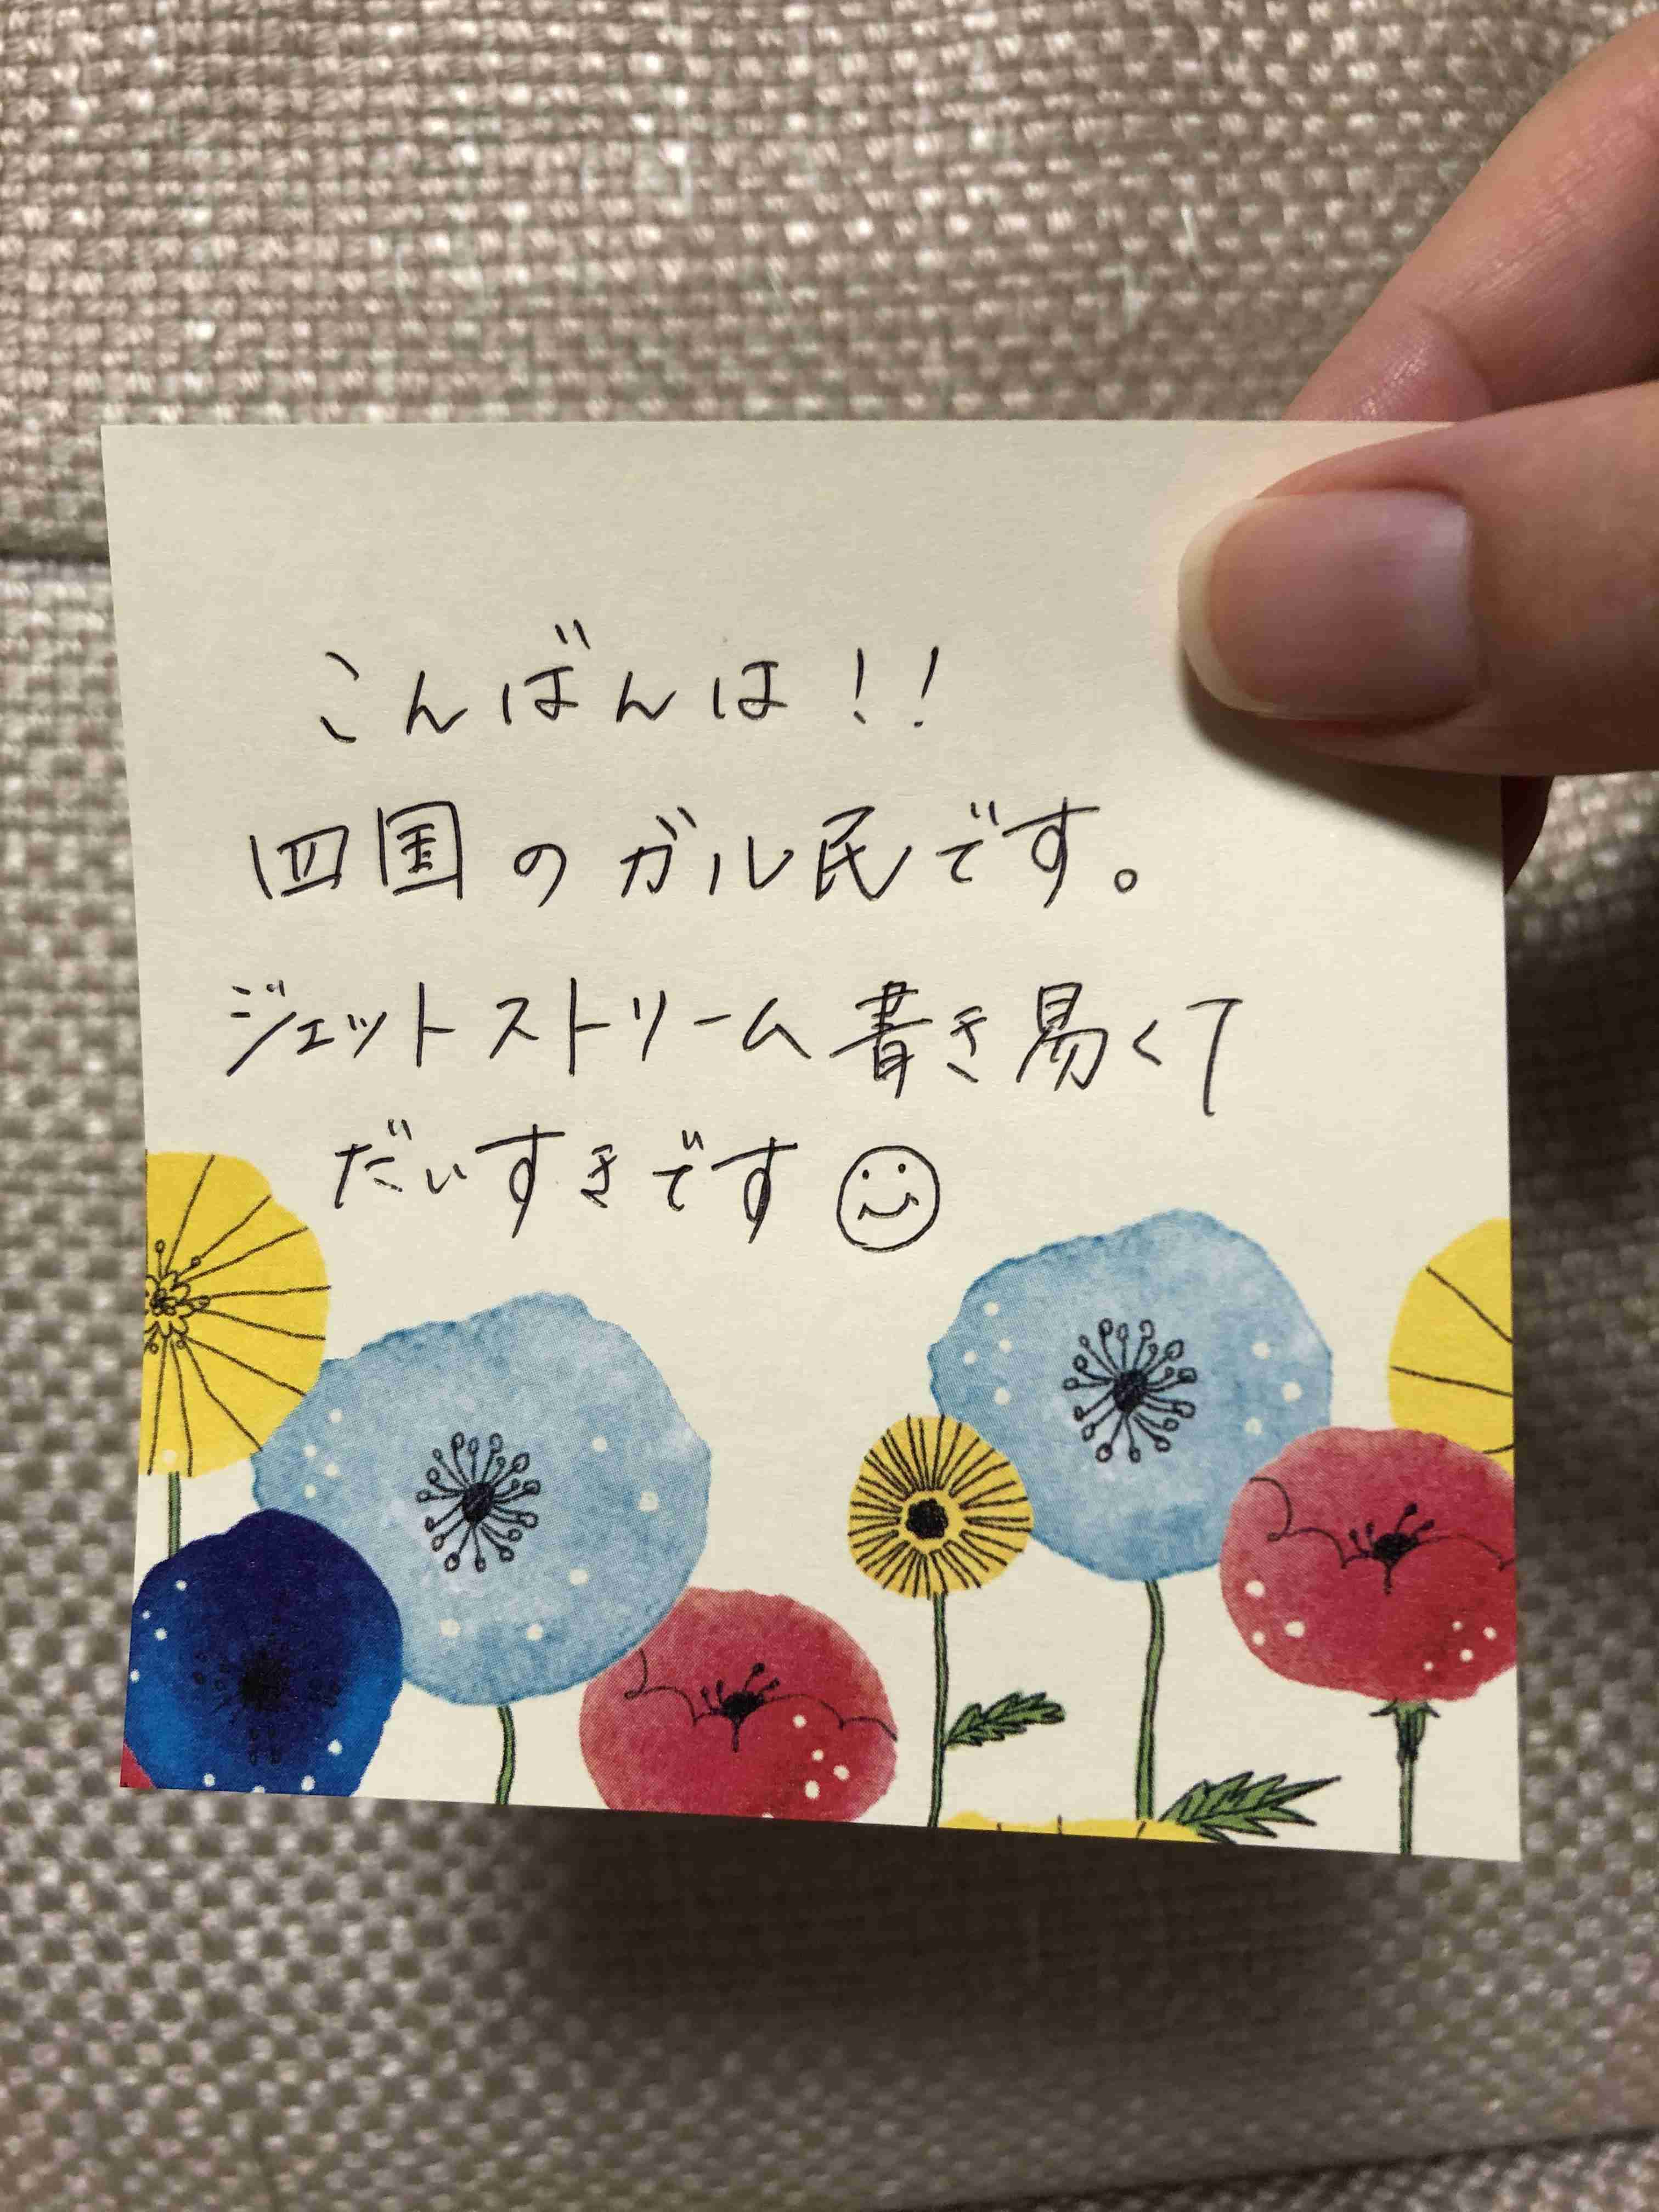 こんばんは!!
四国のガル民です。
ジェットストリーム書き易くて
だいすきです